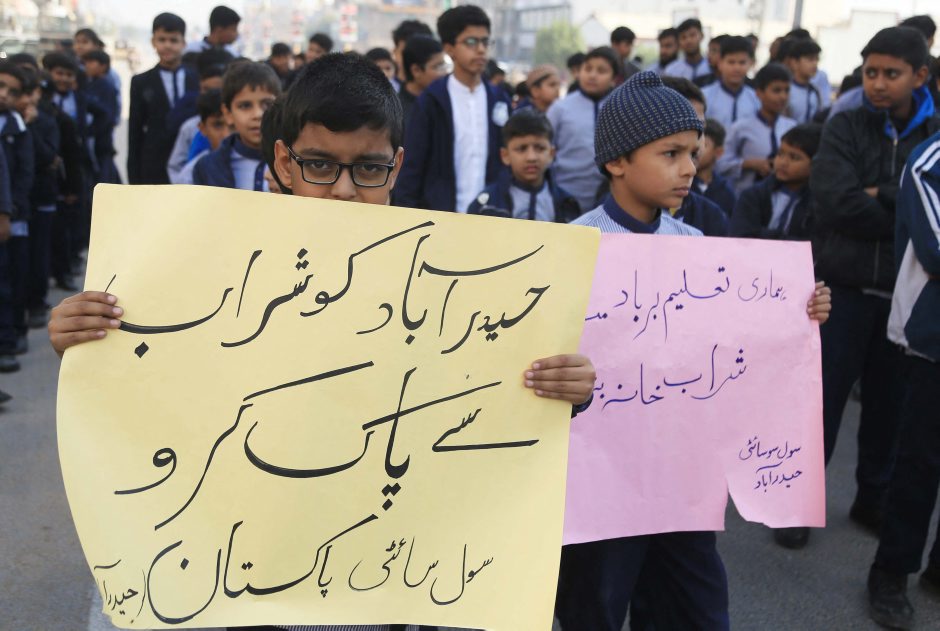 حیدرآباد کو شراب
سے پاک کرو
سول سائٹی پاکستان (حیدرآ
ہماری تعلیم برباد
شراب خانہ
سول سوسائٹی
حیدرآباد